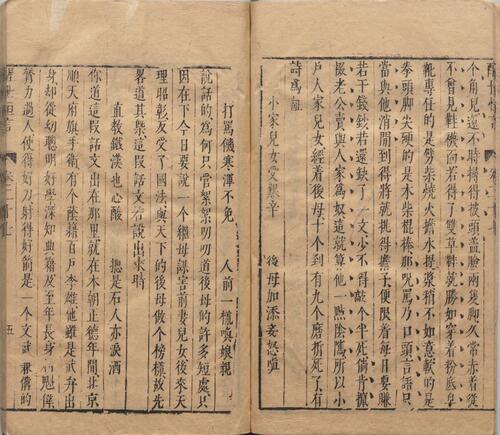 個角兒還不時撏得披頭蓋臉兩隻脚久常赤着從
不曾見鞋襪面若得了雙草鞋就勝如穿着粉底皂
靴專任的是劈柴燒火擔水提漿稍不如意軟的是
拳頭脚尖硬的是木柴棍棒那咒罵乃口頭言語只
當與他消閒到得將就挑得擔子便限着每日要賺
若干錢鈔若還缺了一文少不得敲个半死倘肯攛
掇老公賣與人家為奴這就算他一點陰隲所以小
戶人家兒女經着後母十个到有九个磨折死了有
詩為証
小家兒女受艱辛 後母加添妄怒嗔
打罵饑寒渾不免 人前一樣喚娘親
說話的為何只管絮絮叨叨道後母的許多短處只
因在下今日要說一個繼母謀害前妻兒女後來天
理昭彰反受了國法與天下的後母做個榜樣故先
畧道其槩這段話文若說出來時
直教鐵漢也心酸 總是石人亦淚洒
你道這段話文出在那里就在本朝正德年間北京
順天府旗手衛有个蔭籍百戶李雄他雖是武弁出
身却從幼聰明好學深知典籍及至年長身材魁偉
膂力過人使得好刀射得好箭是一个文武兼備的
醒世恒言 卷二十七 五